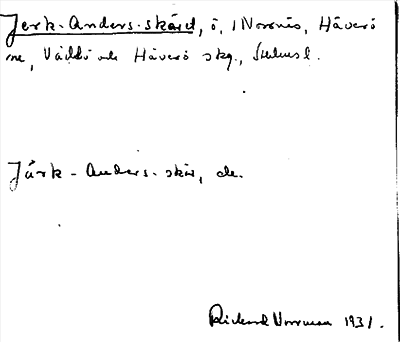 Jerk-Anders-skäret, ö, i Norrnäs, Häverö
sn, Väddö och Häverö skg., Sthms l.
Järk-Anders-skär, de.
Rickard Norrman 1931.